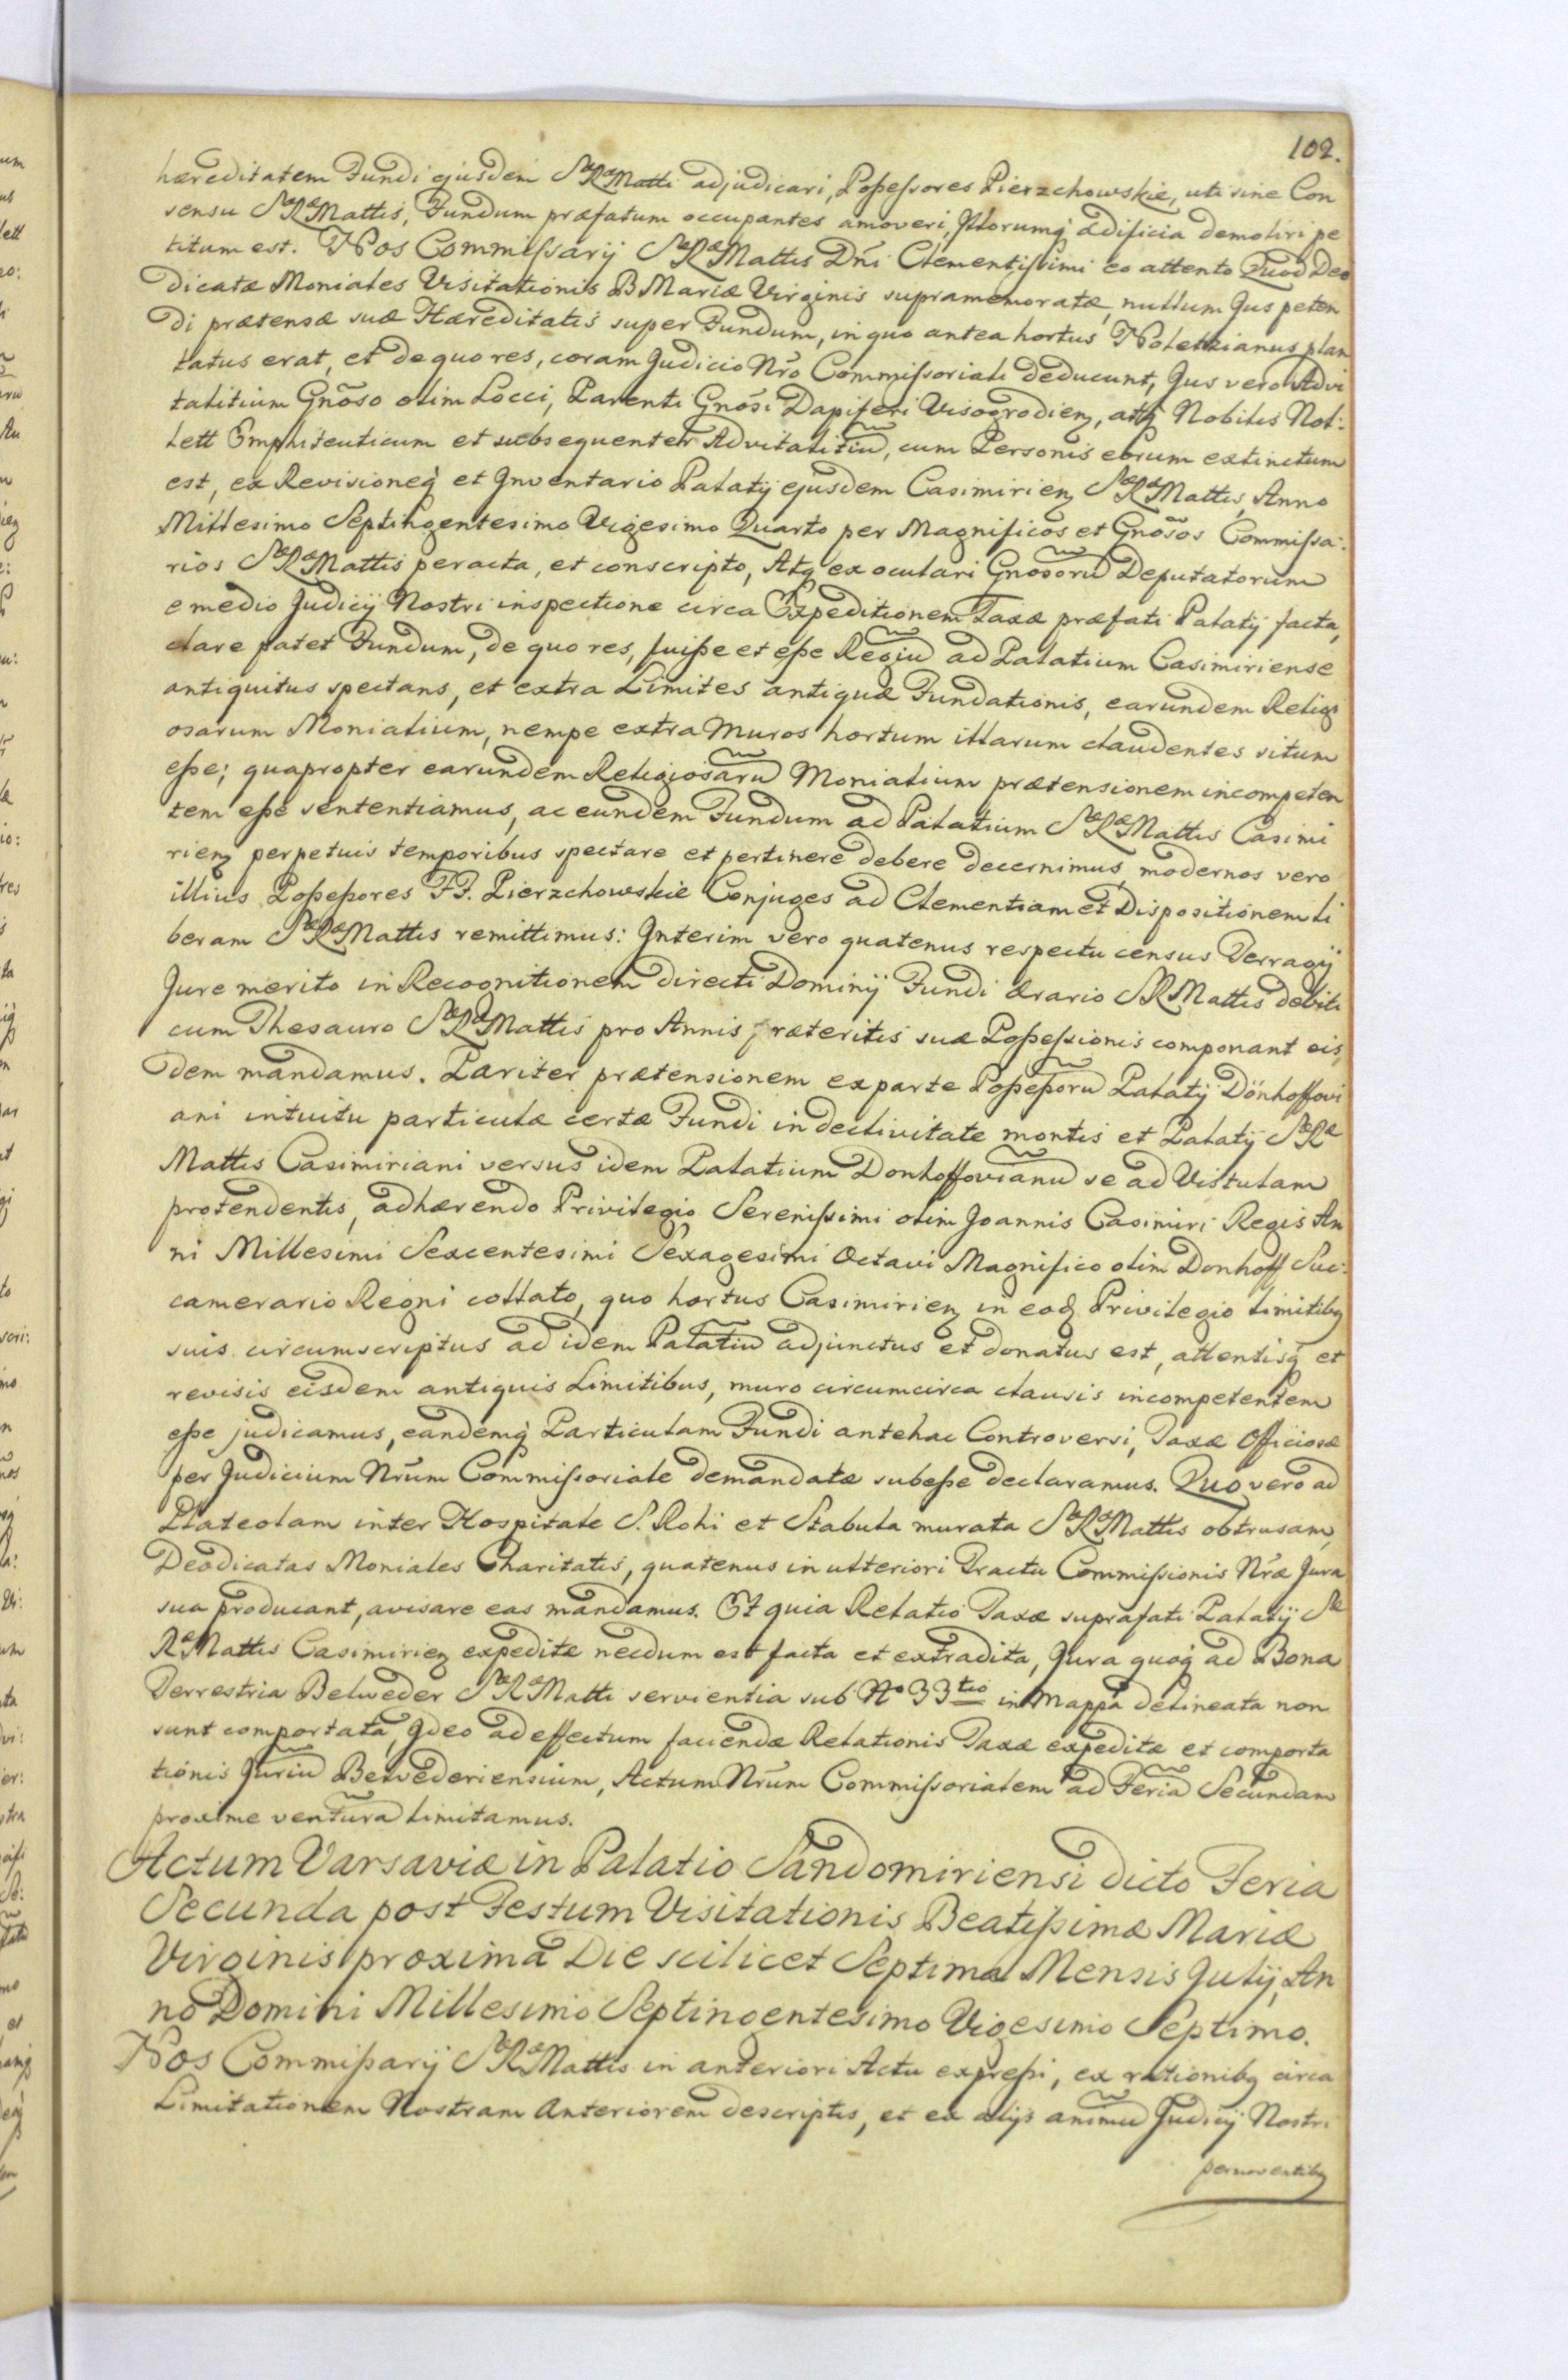 102.
hæreditatem Fundi ejusdem SæRæMatti adjudicari, Poßeßores Pierzchowskie, uti sine Con
sensu SæRæMattis, Fundum præfatum occupantes amoveri, Illorumq̇ ædificia demoliri pe
titum est. Nos Commißarij SæRæMattis Dñi Clementißimi eo attento Quod Deo
Dicatæ Moniales Visitationis B Mariæ Virginis supramemoratæ, nullum Jus peten
di prætensæ suæ Hæreditatis super Fundum, in quo antea hortus Noletzianus plan
tatus erat, et de quo res, coram Judicio Nr̃o Commißoriali deducunt, Jus vero Advi
talitium Gnõso olim Locci, Parenti Gnõsi Dapiferi Visogrodienȝ, atq̇ Nobilis Not:
lett Emphiteuticum et subsequenter Advitalitiũ, cum Personis eorum extinctum
est, ex Revisioneq̇ et Inventario Palatij ejusdem Casimirienȝ SæRæMattis, Anno
Millesimo Septingentesimo Vigesimo Quarto per Magnificos et Gnõsos Commißa:
rios SæRæMattis peracta, et conscripto, Atq̇ ex oculari Gnõsorũ Deputatorum
e medio Judicij Nostri inspectione circa Expeditionem Taxæ præfati Palatij facta,
clare patet Fundum, de quo res, fuiße et eße Regiũ ad Palatium Casimiriense
antiquitus spectans, et extra Limites antiquæ Fundationis, earundem Religi
osarum Monialium, nempe extra Muros hortum illarum claudentes situm
eße; quapropter earundem Religiosarũ Monialium prætensionem incompeten
tem eße sententiamus, ac eundem Fundum ad Palatium SæRæMattis Casimi
rienȝ perpetuis temporibus spectare et pertinere debere decernimus, modernos vero
illius Poßeßores FF. Pierzchowskie Conjuges ad Clementiam et Dispositionem li
beram SæRæMattis remittimus: Interim vero quatenus respectu census Terragij
Jure merito in Recognitionem directi Dominij Fundi ærario SRMattis debiti
cum Thesauro SæRæMattis pro Annis præteritis suæ Poßeßionis componant eis
dem mandamus. Pariter prætensionem ex parte Poßeßorũ Palatij Dönhoffovi
ani intuitu particulæ certæ Fundi in declivitate montis et Palatij SæRæ
Mattis Casimiriani versus idem Palatium Donhoffovianũ se ad Vistulam
protendentis, adhærendo Privilegio Sereniſsimi olim Joannis Casimiri Regis An
ni Millesimi Sexcentesimi Sexagesimi Octavi Magnifico olim Donhoff Suc:
camerario Regni collato, quo hortus Casimirienȝ in eodȝ Privilegio limitibȝ
suis circumscriptus ad idem Palatiũ adjunctus et donatus est, attentisq̇ et
revisis eisdem antiquis Limitibus, muro circumcirca clausis incompetentem
eße judicamus, eandemq̇ Particulam Fundi antehac Controversi, Taxæ Officiosæ
per Judicium Nrũm Commißoriale demandatæ subeße declaramus. Quo vero ad
Plateolam inter Hospitale S. Rohi et Stabula murata SæRæMattis obtrusam,
Deodicatas Moniales Charitatis, quatenus in ulteriori Tractu Commißionis Nr̃æ Jura
sua producant, avisare eas mandamus. Et quia Relatio Taxæ suprafati Palatij Sæ
RæMattis Casimirienȝ expeditæ necdum est facta et extradita, Jura quoq̇ ad Bona
Terrestria Belweder SæRæMatti servientia sub No 33tio in Mappa delineata non
sunt comportata, Ideo ad effectum faciendæ Relationis Taxæ expeditæ et comporta
tionis Juriũ Belvederiensium, Actum Nrũm Commißorialem ad Feriã Secundam
proxime venturã limitamus.
Actum Varsaviæ in Palatio Sandomiriensi dicto Feria
Secunda post Festum Visitationis Beatißimæ Mariæ
Virginis proxima Die scilicet Septima Mensis Julij, An
no Domini Millesimo Septingentesimo Vigesimo Septimo.
Nos Commißarij SæRæMattis in anteriori Actu expreßi, ex rationibȝ circa
Limitationem Nostram Anteriorem descriptis, et ex alijs animũ Judicij Nostri
permoventibȝ